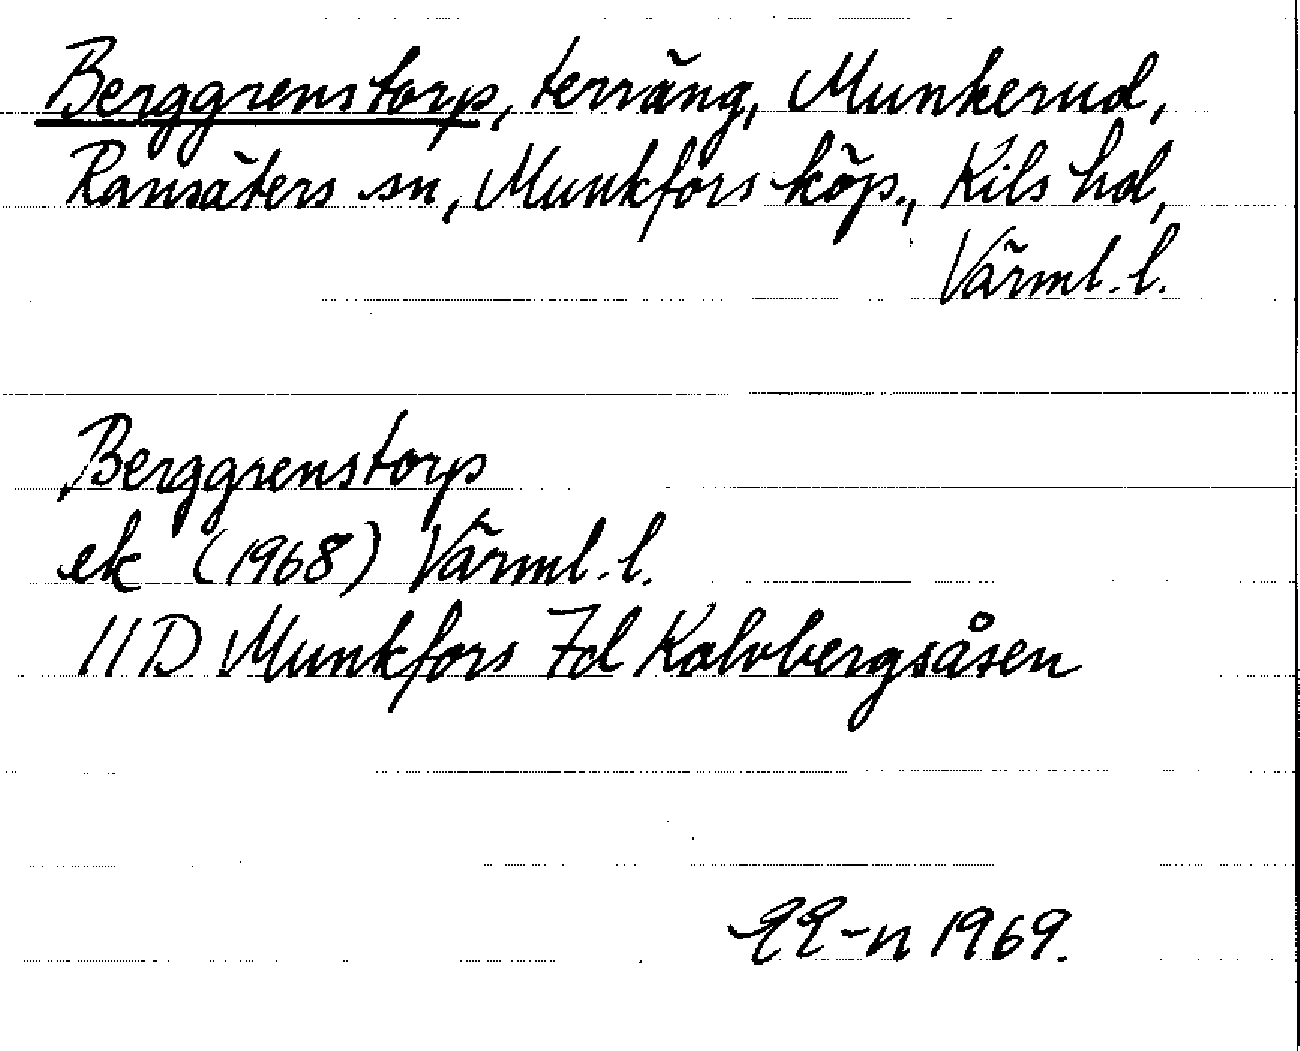 Berggrenstorp, terräng, Munkerud,
Ransäters sn, Munkfors köp., Kils hd,
Värml. l.
Berggrenstorp
ek (1968) Värml. l.
11D Munkfors 7d Kalvbergsåsen
EE-n 1969.